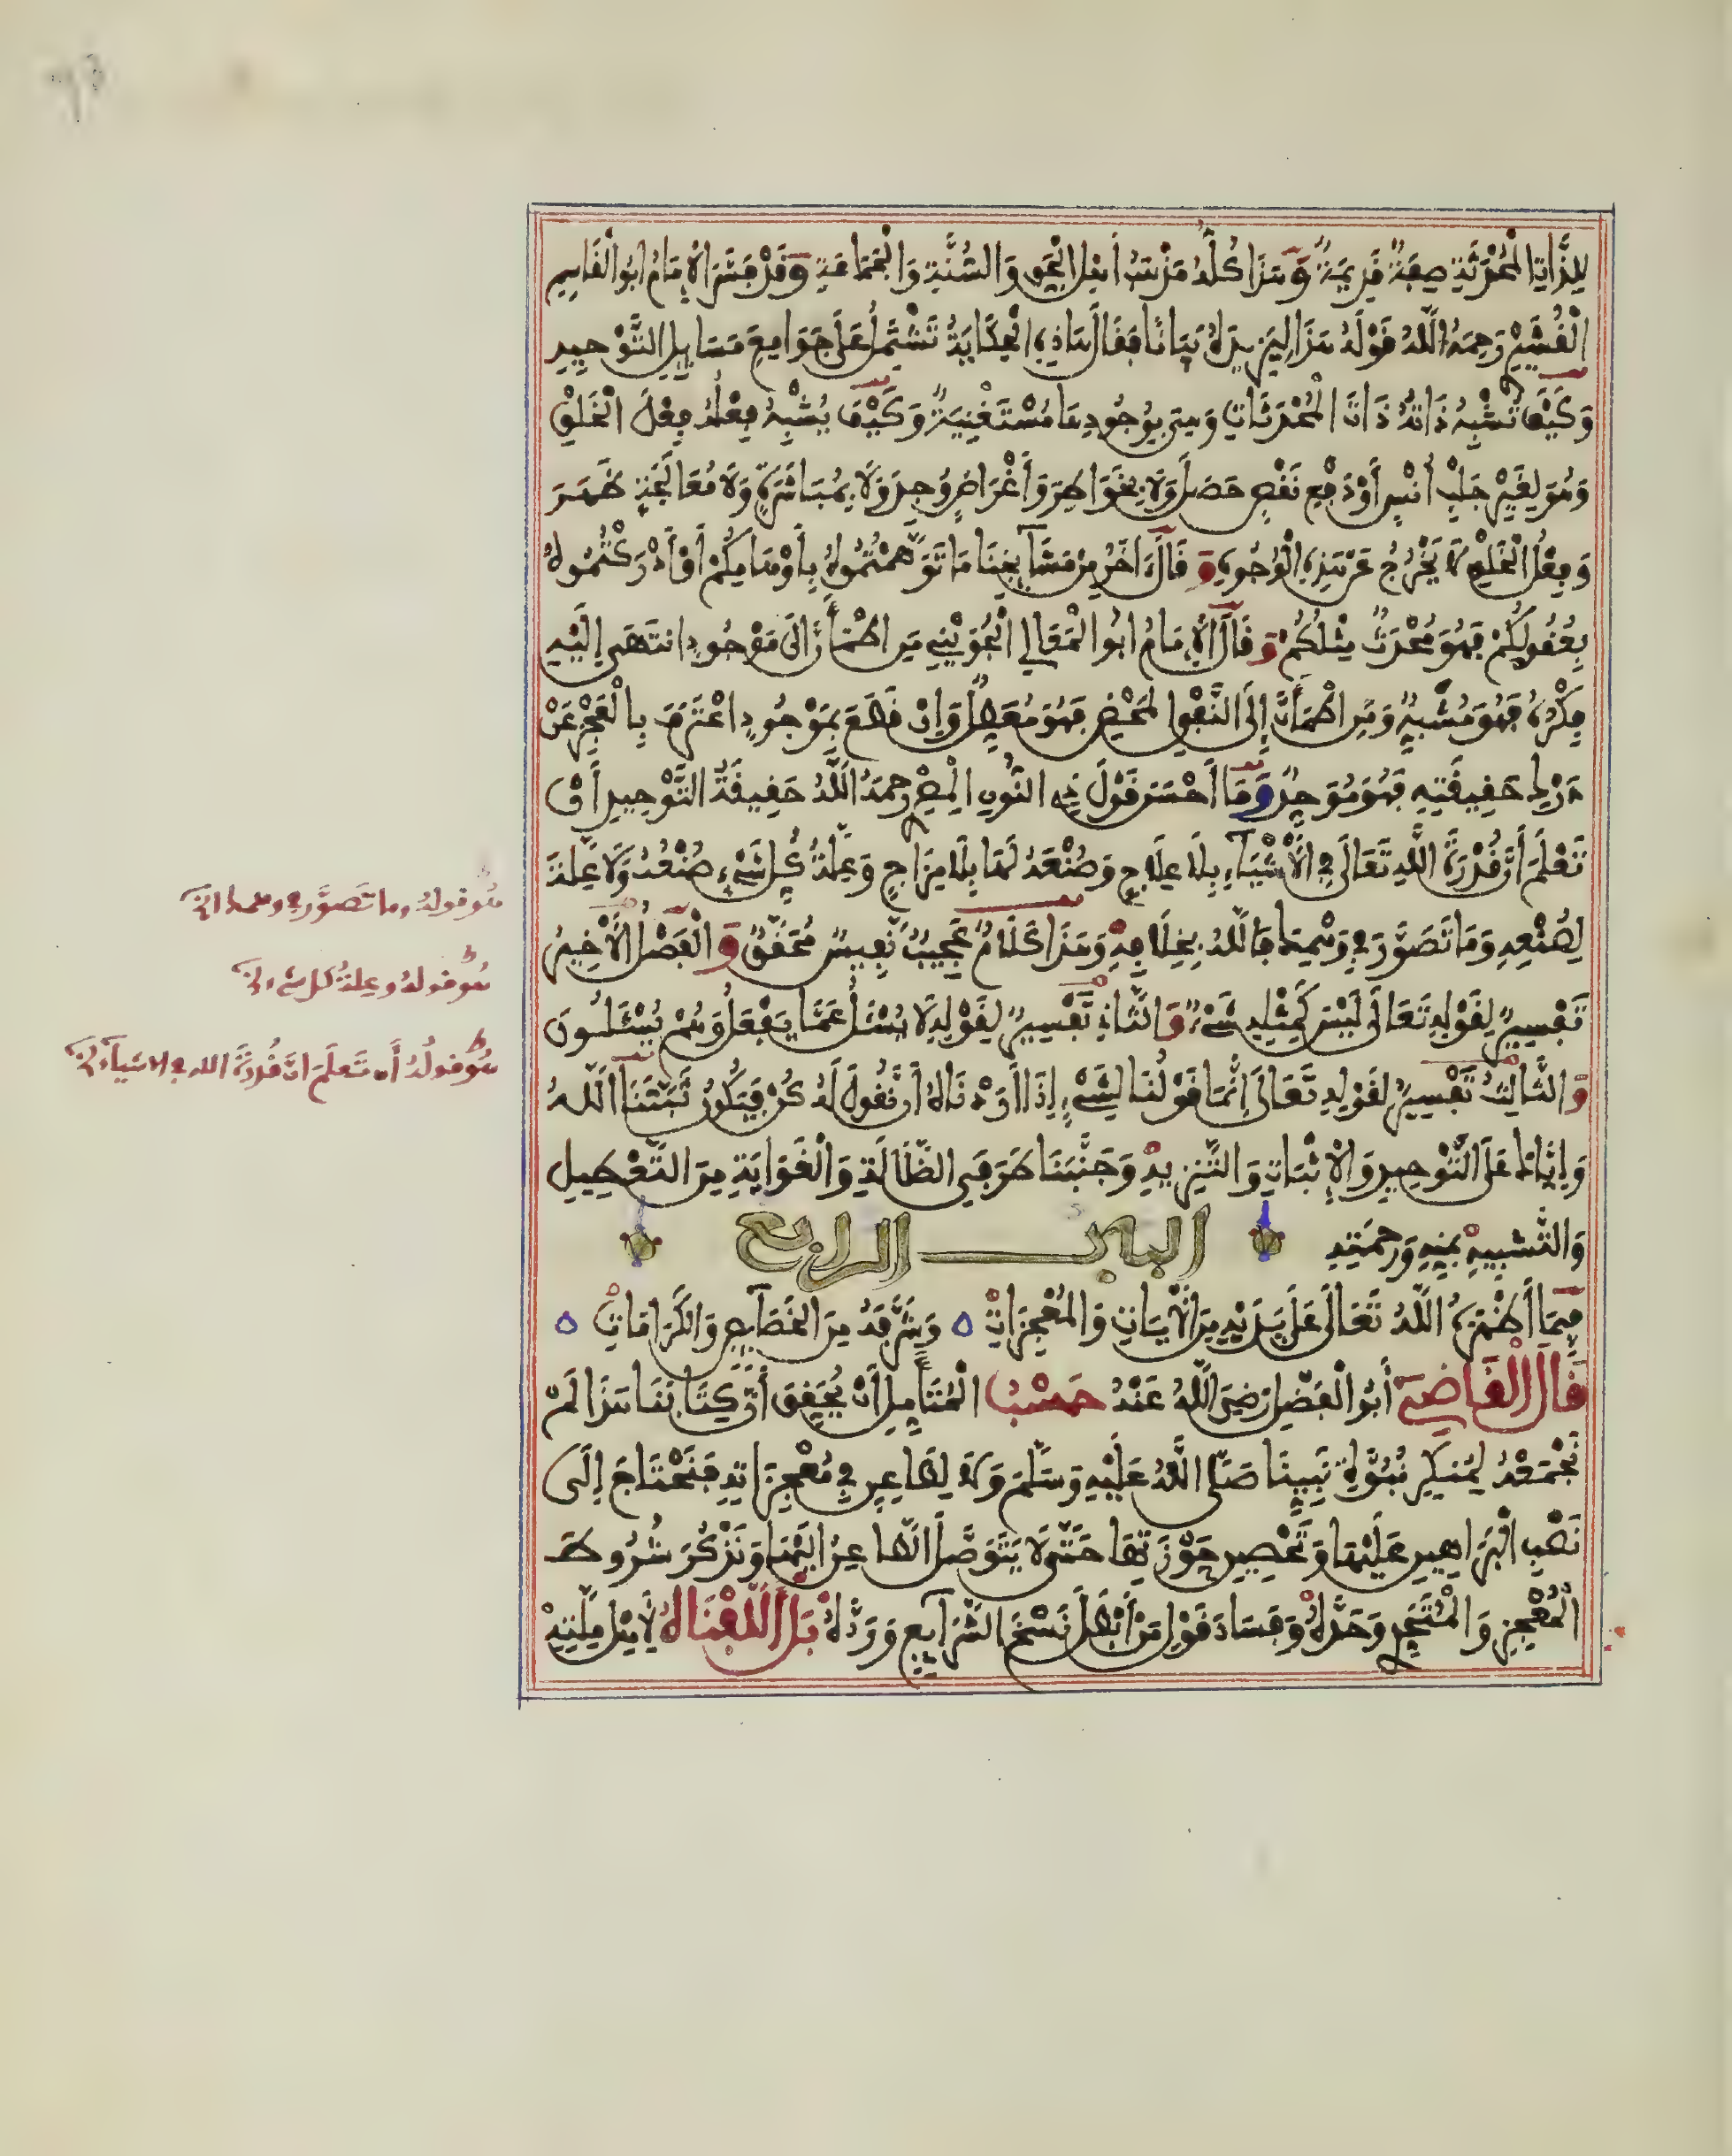 لِلذَّاتِ الْمُحْدَثَةِ صِفَةٌ قَدِيمَةٌ وَهَذَا كُلُّهُ مَذْهَبُ أَهْلِ الْحَقِّ وَالسُّنَّةِ وَالْجَمَاعَةِ وَقَدْ فَسَّرَ الْإِمَامُ أَبُو الْقَاسِمِ
الْقُشَيْرِيُّ رَحِمَهُ اللَّهُ قَوْلَهُ هَذَا لِيَزِيدَهُ بَيَانًا فَقَالَ هَذِهِ الْحِكَايَةُ تَشْتَمِلُ عَلَى جَوَامِعِ مَسَايِلِ التَّوْحِيدِ
وَكَيْفَ تُشْبِهُ ذَاتُهُ ذَاتَ الْمُحْدَثَاتِ وَهِيَ بِوُجُودِهَا مُسْتَغْنِيَةٌ وَكَيْفَ يُشْبِهُ فِعْلُهُ فِعْلَ الْخَلْقِ
وَهُوَ لِغَيْرِ جَلْبِ أُنْسٍ أَوْ دَفْعِ نَقْصٍ حَصَلَ وَلَا بِخَوَاطِرَ وَأَغْرَاضٍ وُجِدَ وَلَا بِمُبَاشَرَةٍ وَلَا مُعَالَجَةٍ ظَهَرَ
وَفِعْلُ الْخَلْقِ لَا يَخْرُجُ عَنْ هَذِهِ الْوُجُوهِ وَقَالَ آخَرُ مِنْ مَشَايِخِنَا مَا تَوَهَّمْتُمُوهُ بِأَوْهَامِكُمْ أَوْ أَدْرَكْتُمُوهُ
بِعُقُولِكُمْ فَهُوَ مُحْدَثٌ مِثْلُكُمْ وَقَالَ الْإِمَامُ أَبُو الْمَعَالِي الْجُوَيْنِي مَنِ اطْمَأَنَّ إِلَى مَوْجُودٍ انْتَهَى إِلَيْهِ
فِكْرُهُ فَهُوَ مُشَبِّهٌ وَمَنِ اطْمَأَنَّ إِلَى النَّفْيِ الْمَحْضِ فَهُوَ مُعَطِّلٌ وَإِنْ قَطَعَ بِمَوْجُودٍ اعْتَرَفَ بِالْعَجْزِ عَنْ
دَرْكِ حَقِيقَتِهِ فَهُوَ مُوَحِّدٌ وَمَا أَحْسَنَ قَوْلَ ذِي النُّونِ الْمِصْرِي رَحِمَهُ اللَّهُ حَقِيقَةُ التَّوْحِيدِ أَنْ
تَعْلَمَ أَنَّ قُدْرَةَ اللَّهِ تَعَالَى فِي الْأَشْيَاءِ بِلَا عِلَاجٍ وَصُنْعَهُ لَهَا بِلَا مِزَاجٍ وَعِلَّةُ كُلِّ شَيْءٍ صُنْعُهُ وَلَا عِلَّةَ
لِصُنْعِهِ وَمَا تُصُوِّرَ فِي وَهْمِكَ فَاللَّهُ بِخِلَافِهِ وَهَذَا كَلَامٌ عَجِيبٌ نَفِيسٌ مُحَقَّقٌ وَالْفَصْلُ الْأَخِيرُ
تَفْسِيرٌ لِقَوْلِهِ تَعَالَى لَيْسَ كَمِثْلِهِ شَيْءٌ وَالثَّانِي تَفْسِيرٌ لِقَوْلِهِ لَا يُسْئَلُ عَمَّا يَفْعَلُ وَهُمْ يُسْئَلُونَ
وَالثَّالِثُ تَفْسِيرٌ لِقَوْلِهِ تَعَالَى إِنَّمَا قَوْلُنَا لِشَيْءٍ إِذَا أَرَدْنَاهُ أَنْ نَقُولَ لَهُ كُنْ فَيَكُونُ ثَبَّتَنَا اللَّهُ
وَإِيَّاكَ عَلَى التَّوْحِيدِ وَالْإِثْبَاتِ وَالتَّنْزِيهِ وَجَنَّبَنَا طَرَفَيِ الضَّلَالَةِ وَالْغَوَايَةِ مِنَ التَّعْطِيلِ
وَالتَّشْبِيهِ بِمَنِّهِ وَرَحْمَتِهِ الباب الرابع
فِيمَا أَظْهَرَهُ اللَّهُ تَعَالَى عَلَى يَدَيْهِ مِنَ الْآيَاتِ وَالْمُعْجِزَاتِ وَشَرَّفَهُ مِنَ الْخَصَايِصِ وَالْكَرَامَاتِ
قَالَ الْقَاضِي أَبُو الْفَضْلِ رَضِيَ اللَّهُ عَنْهُ حَسْبُ الْمُتَأَمِّلِ أَنْ يُحَقِّقَ أَنَّ كِتَابَنَا هَذَا لَمْ
نَجْمَعْهُ لِمُنْكِرِ نُبُوَّةِ نَبِيِّنَا صَلَّى اللَّهُ عَلَيْهِ وَسَلَّمَ وَلَا لِطَاعِنٍ فِي مُعْجِزَاتِهِ فَنَحْتَاجَ إِلَى
نَصْبِ الْبَرَاهِينِ عَلَيْهَا وَتَحْصِينِ حَوْزَتِهَا حَتَّى لَا يَتَوَصَّلَ الطَّاعِنُ إِلَيْهَا وَنَذْكُرَ شُرُوطَ
الْمُعْجِزِ وَالْمُتَحَدِّي وَحَدَّهُ وَفَسَادَ قَوْلِ مَنْ أَبْطَلَ نَسْخَ الشَّرَايِعِ وَرَدَّهُ بَلْ أَلَّفْنَاهُ لِأَهْلِ مِلَّتِهِ
قوله وما تصور في وهمك الخ
قوله وعلة كل شيء الخ
قوله أن تعلم ان قدرة الله في الاشياء الخ